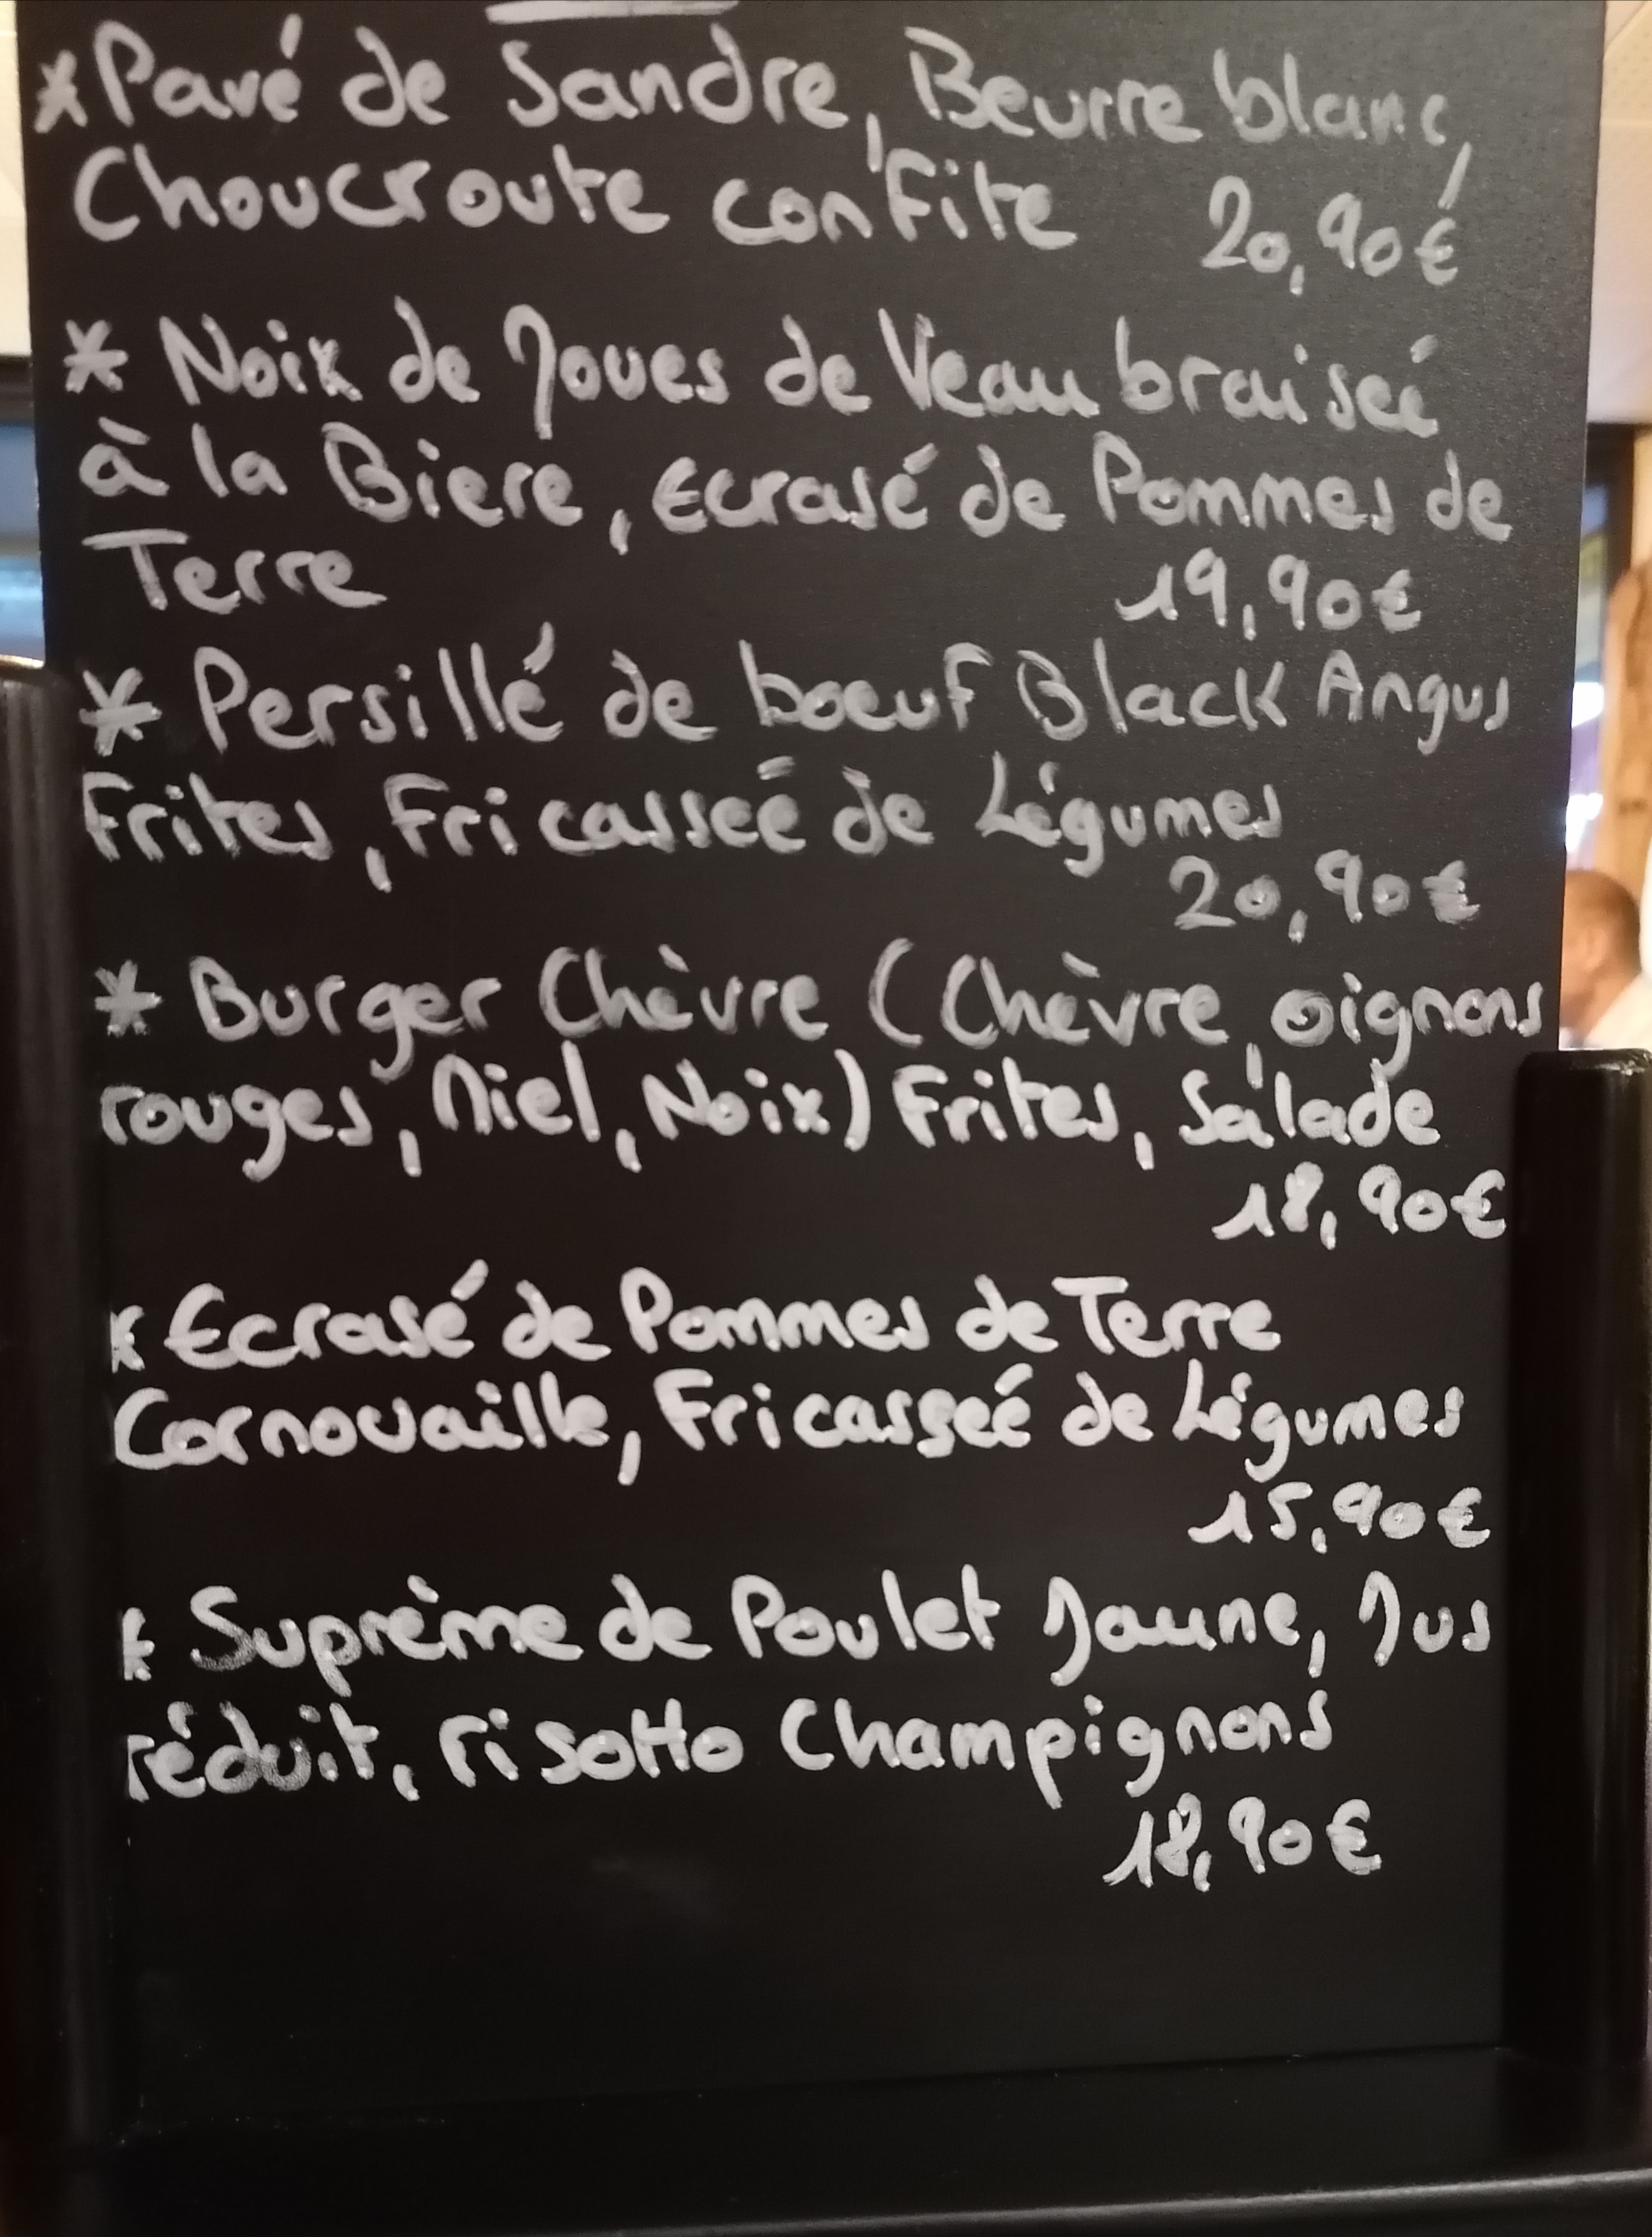 * Pavé de Sandre, Beurre blanc,
Choucroute confite 20,90€
* Noix de Joues de Veau braiseé
à la Biere, Ecrasé de Pommes de
Terre 19,90€
* Persillé de boeuf Black Angus
Frites, Fricasseé de Légumes
20,90€
* Burger Chèvre (Chèvre, oignons
rouges, Miel, Noix) Frites, Salade
18,90€
* Ecrasé de Pommes de Terre
Cornouaille, Fricasseé de Légumes
15,90€
* Suprème de Poulet Jaune, Jus
réduit, risotto Champignons
18,90€